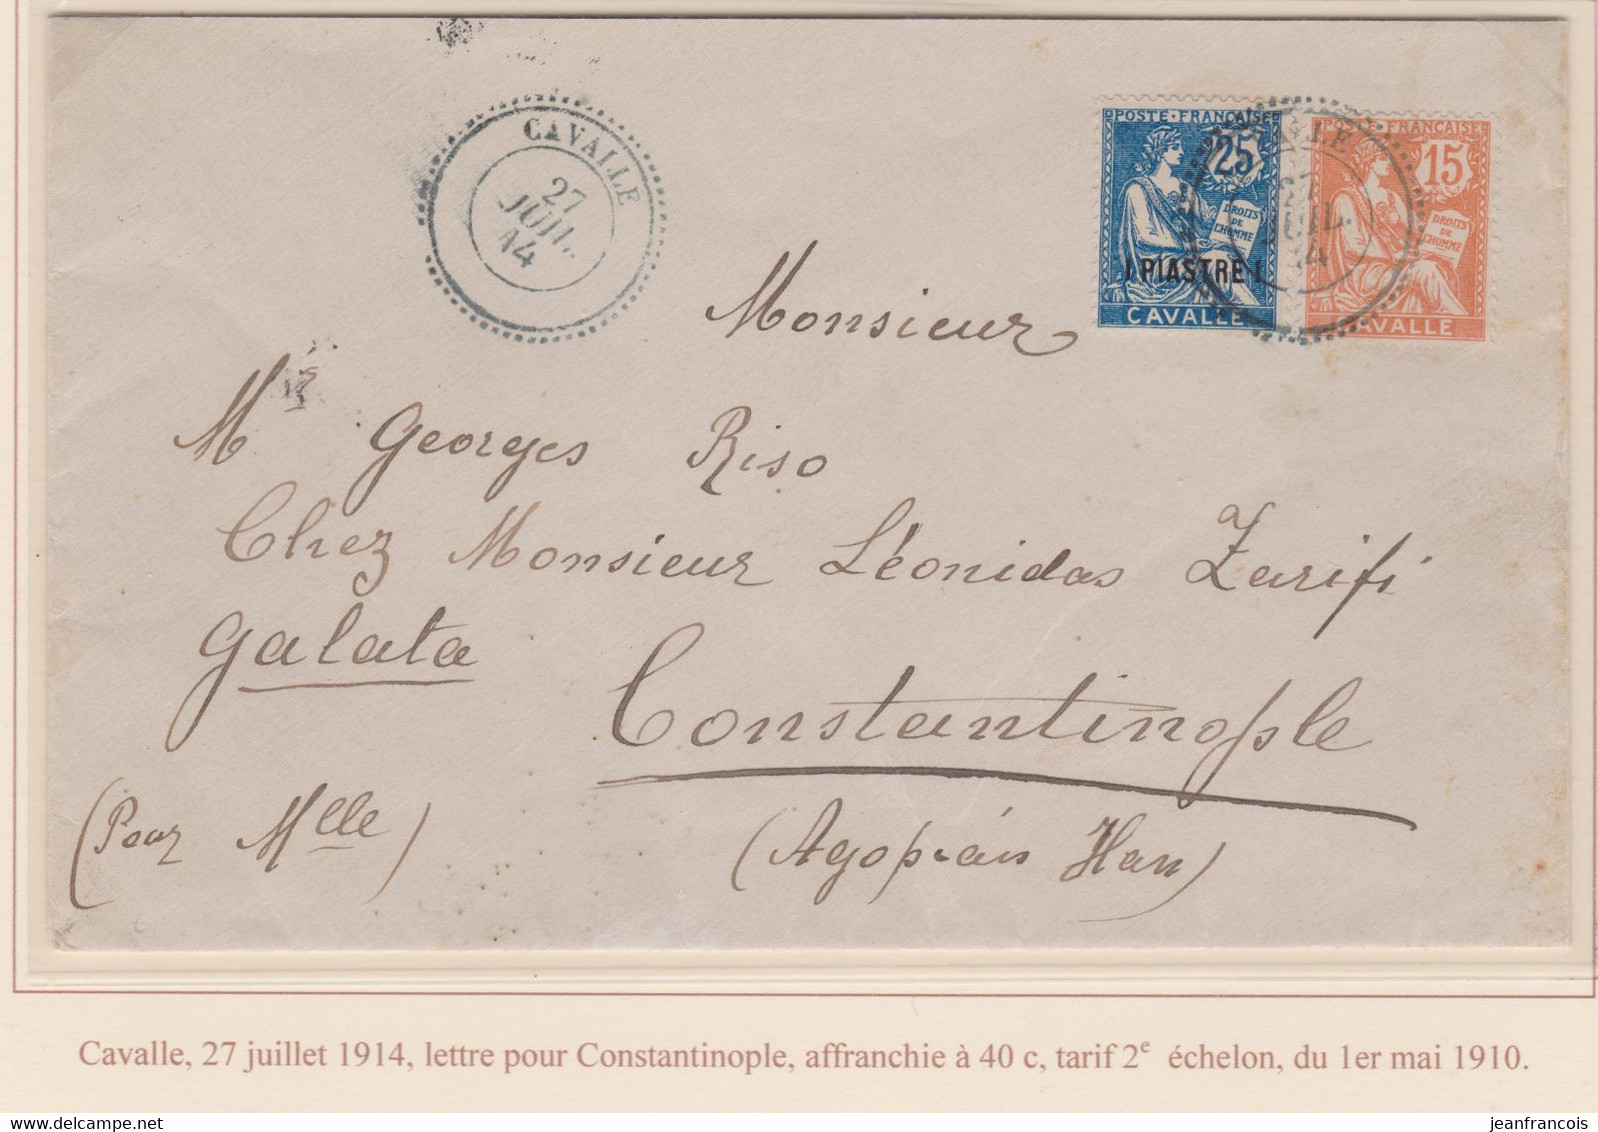 CAVALLE
27
JUIL.
14
POSTE·FRANÇAISE
25
DROITS
DE
L'HOMME
1 PIASTRE 1
CAVALLE
POSTE·FRANÇAISE
15
DROITS
DE
L'HOMME
CAVALLE
27
JUIL.
14
Monsieur
Mr Georges Riso
Chez Monsieur Léonidas Zarifi
Galata
Constantinople
(Pour Mlle)
Han)
Cavalle, 27 juillet 1914, lettre pour Constantinople, affranchie à 40 c, tarif 2e échelon, du 1er mai 1910.
www.delcampe.net
jeanfrancois